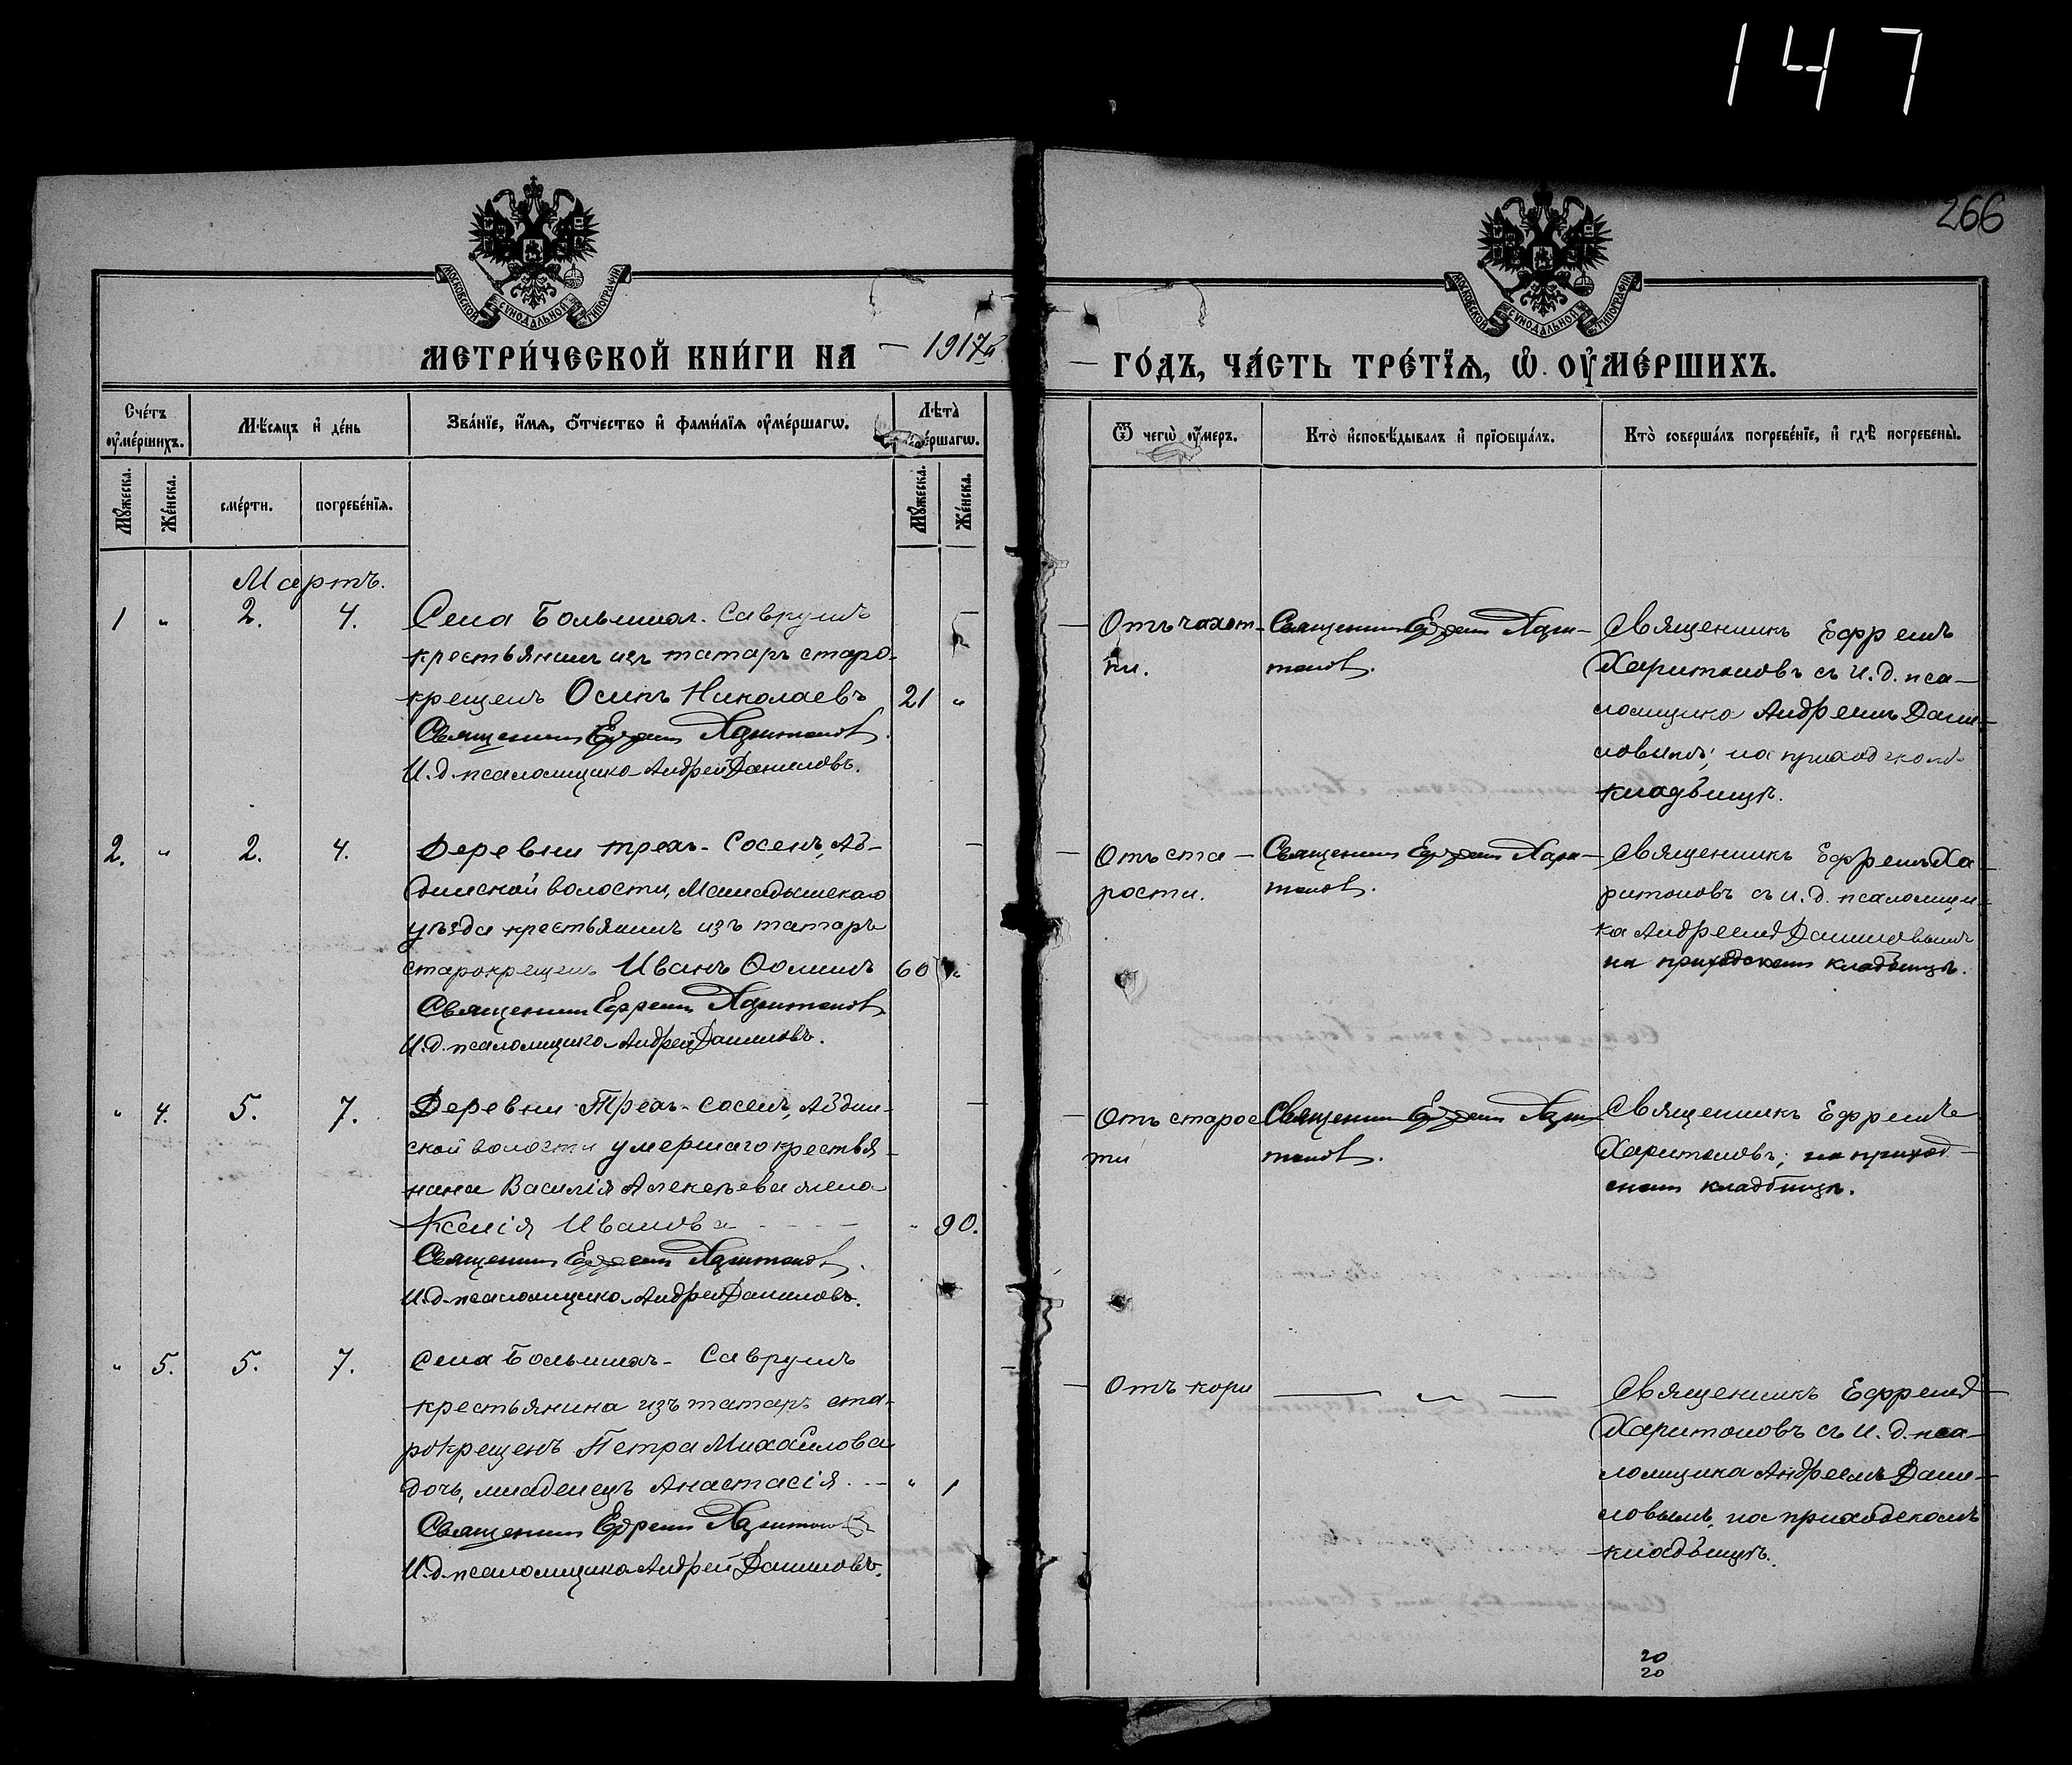 147
266
МОСКОВСКОЙ СѴНОДАЛЬНОЙ ТИПОГРАФІИ
МОСКОВСКОЙ СѴНОДАЛЬНОЙ ТИПОГРАФІИ
МЕТРИ́ЧЕСКОЙ КНИ́ГИ НА – 1917й
– ГО́ДЪ, ЧА́СТЬ ТРЕ́ТЇѦ, Ѡ҆ ОУ҆МЕ́РШИХЪ.
Сче́тъ оу҆ме́ршихъ.
Мѣ́сяцъ и҆ де́нь
Зва́нїе, и҆́мѧ, ѻ҆́тчество и҆ фами́лїѧ оу҆ме́ршагѡ.
Лѣ́та
е́ршагѡ.
Ѿ чегѡ̀ оу҆́меръ.
Кто̀ и҆сповѣ́дывалъ и҆ прїѡбща́лъ.
Кто̀ соверша́лъ погребе́нїе, и҆ гдѣ̀ погребены̀.
Мꙋ́жеска.
Же́нска.
сме́рти.
погребе́нїѧ.
Мꙋ́жеска.
Же́нска.
Мартъ.
1 „ 2. 4. Села Большихъ-Саврушъ
крестьянинъ изъ татаръ старо-
крещенъ Осипъ Николаевъ 21 „
Священникъ Ефремъ Харитоновъ.
И.д. псаломщика Андрей Даниловъ.
Отъ чахот-
ки.
Священникъ Ефремъ Хари-
тоновъ.
Священникъ Ефремъ
Харитоновъ съ и.д. пса-
ломщика Андреемъ Дани-
ловымъ; на приходскомъ
кладбищѣ.
2. „ 2. 4. Деревни Трехъ-Сосенъ, Аз-
динской волости, Мамадышскаго
уѣзда крестьянинъ изъ татаръ
старокрещенъ Иванъ Ѳоминъ 60 „
Священникъ Ефремъ Харитоновъ
И.д. псаломщика Андрей Даниловъ.
Отъ ста-
рости.
Священникъ Ефремъ Хари-
тоновъ.
Священникъ Ефремъ Ха
ритоновъ съ и.д. псаломщи-
ка Андреемъ Даниловымъ
на приходскомъ кладбищѣ.
„ 4. 5. 7. Деревни Трехъ-Сосенъ, Аздин-
ской волости умершаго крестья-
нина Василія Алексѣева жена
Ксенія Иванова - - - „ 90.
Священникъ Ефремъ Харитоновъ.
И.д. псаломщика Андрей Даниловъ.
Отъ старос
ти
Священникъ Ефремъ Хари
тоновъ.
Священникъ Ефремъ
Харитоновъ; на приход-
скомъ кладбищѣ.
„ 5. 5. 7. Села Большихъ-Саврушъ
крестьянина изъ татаръ ста-
рокрещенъ Петра Михайлова
дочь, младенецъ Анастасія. -- „ 1
Священникъ Ефремъ Харитоновъ
И.д. псаломщика Андрей Даниловъ.
Отъ кори
— „ —
Священникъ Ефремъ
Харитоновъ съ И.д. пса-
ломщика Андреемъ Дани-
ловымъ, на приходскомъ
кладбищѣ.
20
20